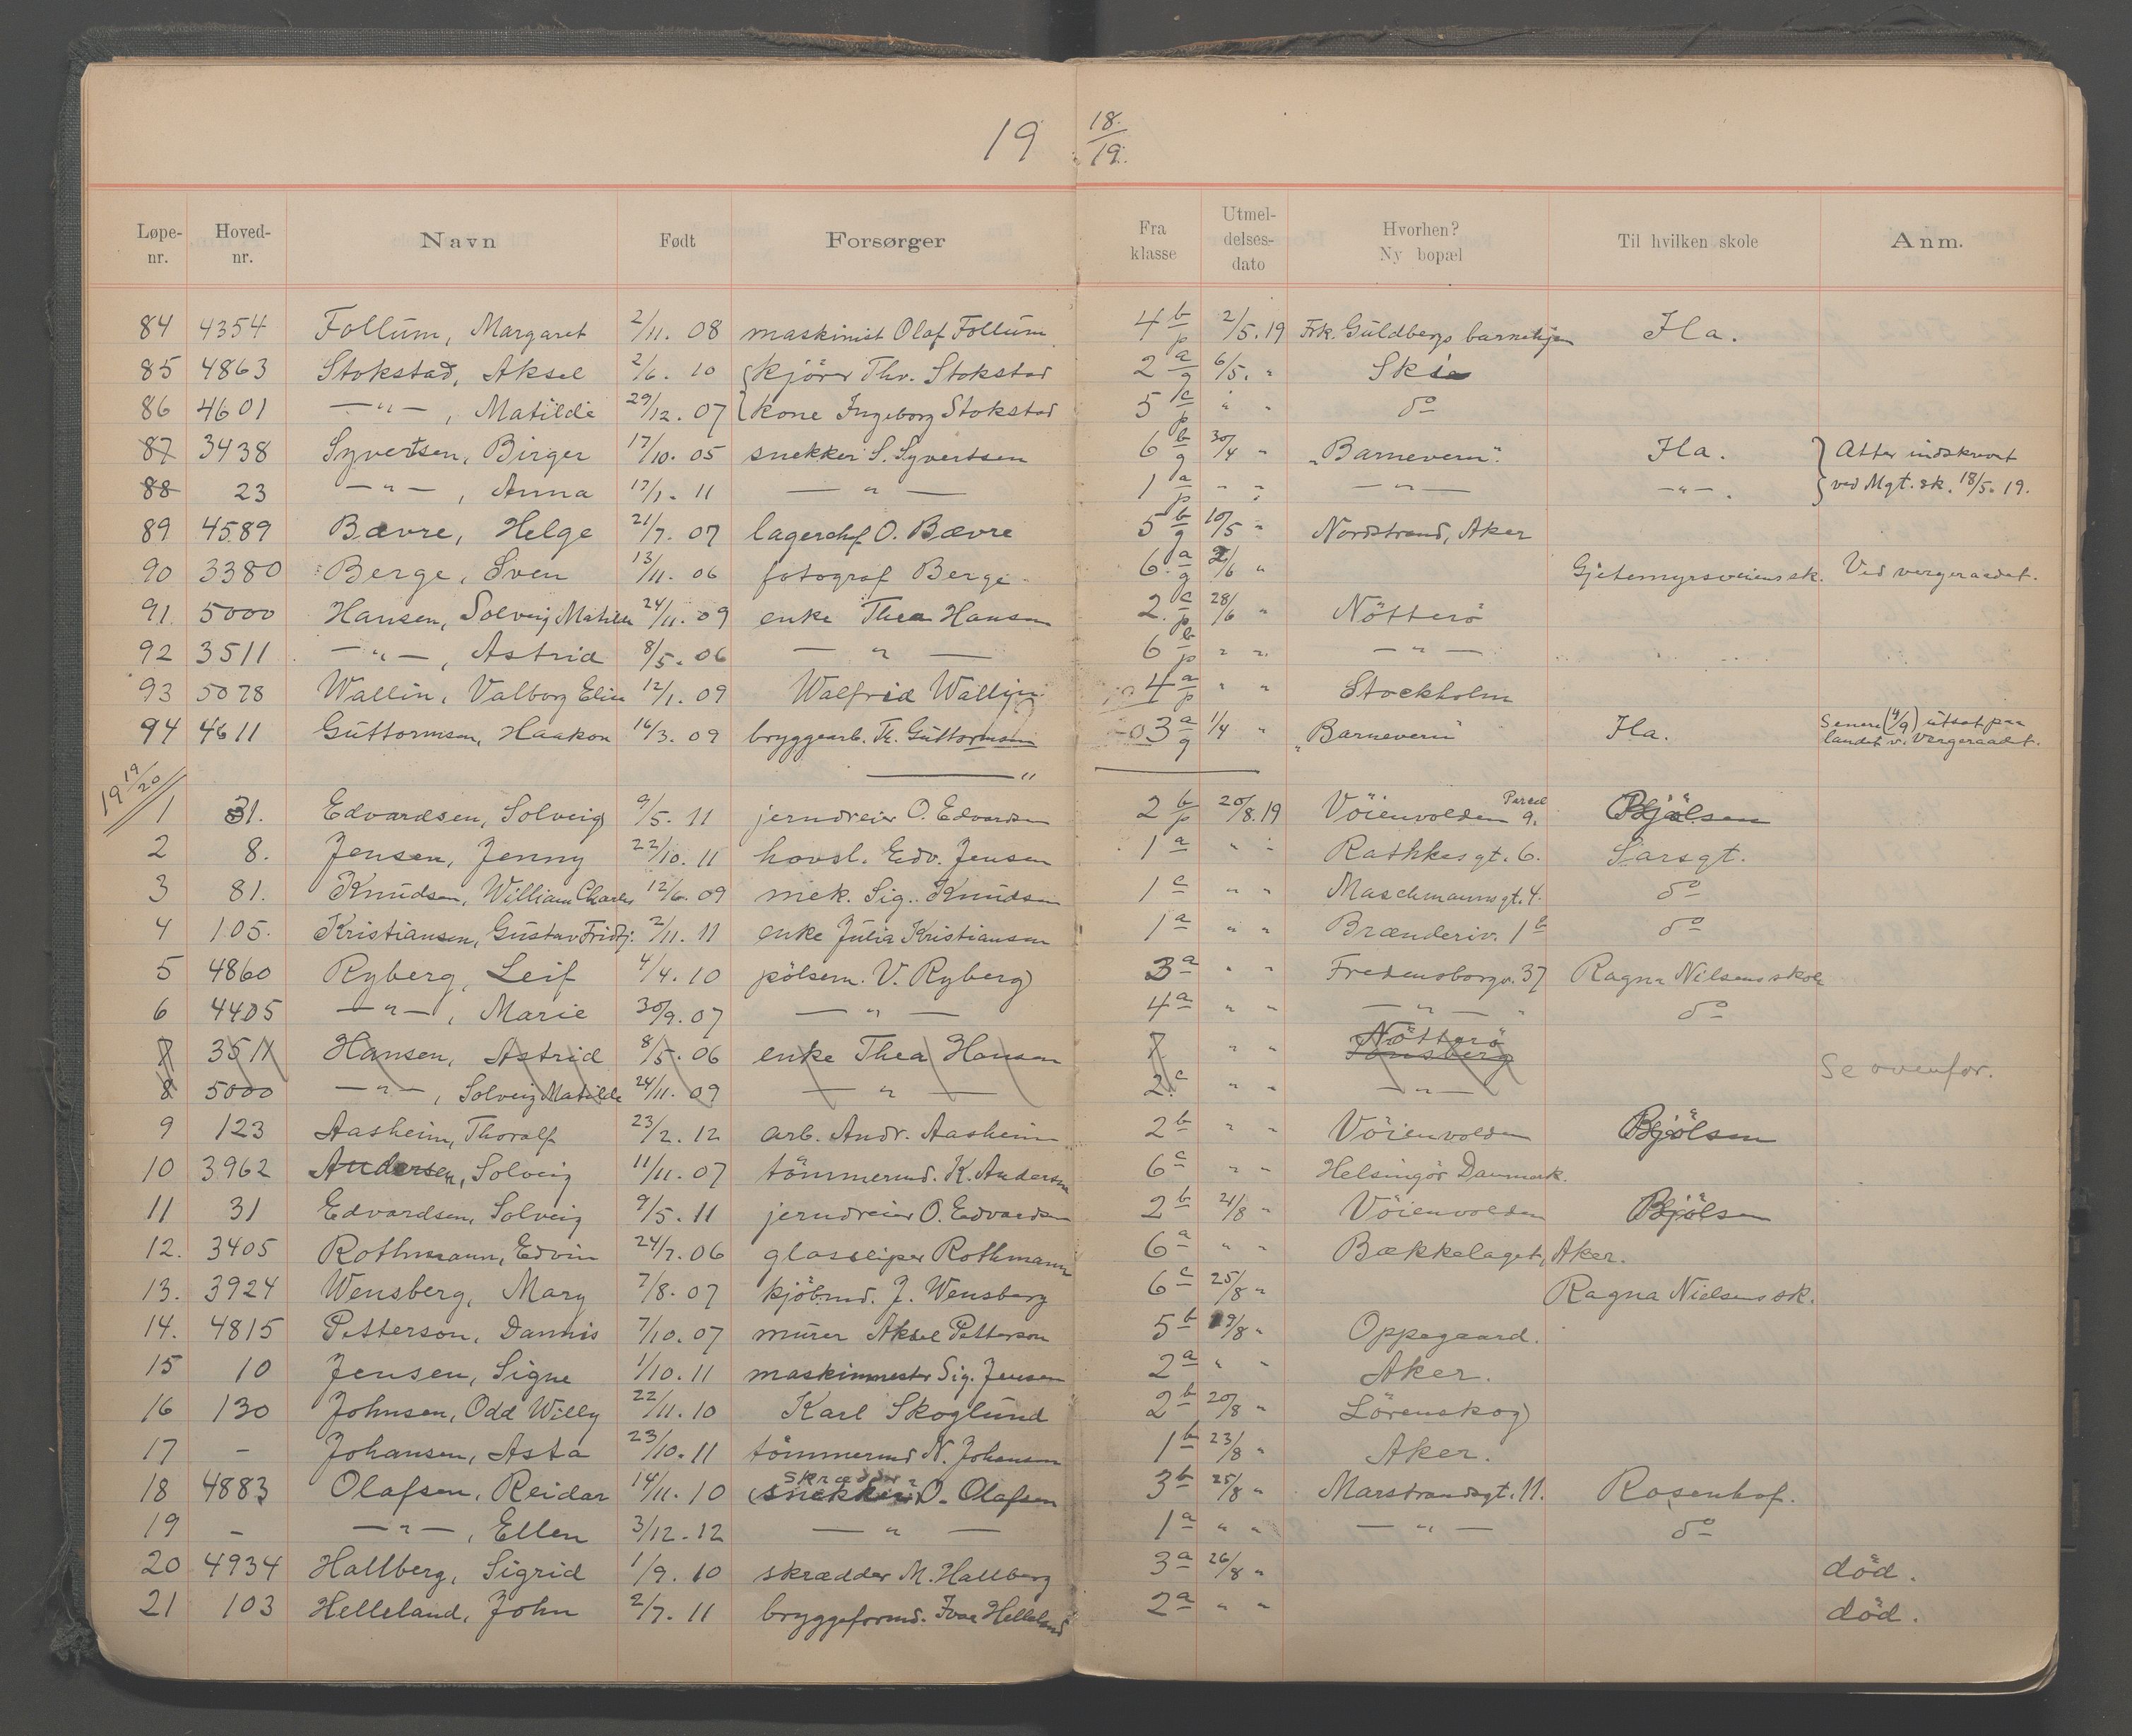 19 18/19.
Løpe-nr. Hoved-nr. Navn Født Forsørger Fra klasse Utmel-delses-dato Hvorhen? Ny bopæl Til hvilken skole Anm.
84 4354 Follum, Margaret 2/11. 08 maskinist Olaf Follum 4 b/p 2/5.19 Frk. Guldbergs barnehjem Ila.
85 4863 Stokstad, Aksel 2/6. 10 kjörer Thv. Stokstad 2 a/g 6/5. " Ski
86 4601 —"—, Matilde 29/12. 07 kone Ingeborg Stokstad 5 c/p " " do
87 3438 Syvertsen, Birger 17/10. 05 snekker S. Syvertsen 6 b/g 30/4 " "Barnevern". Ila. Atter indskrevet
88 23 —"—, Anna 17/1. 11 —"— 1 a/p " " —"— —"—. ved Mgt. sk. 18/5. 19.
89 4589 Bævre, Helge 21/7. 07 lagerchf O. Bævre 5 b/g 10/5 " Nordstrand, Aker
90 3380 Berge, Sven 13/11. 06 fotograf Berge 6. a/g 2/6 " Gjetemyrsveiens sk. Ved vergeraadet.
91. 5000 Hansen, Solveig Matilde 24/11. 09 enke Thea Hansen 2. c/p 28/6 " Nötterö
92 3511 —"—, Astrid 8/5. 06 —"— 6 b/p " " —"—
93 5078 Wallin, Valborg Elin 12/1. 09 Walfrid Wallin 4 a/p " " Stockholm
94 4611 Guttormsen, Haakon 16/3. 09 bryggearb. Th. Guttormsen 3 a/g 1/4 " "Barnevern" Ila. Senere (4/9) utsat paa landet v. Vergeraadet.
19 19/20
1 31. Edvardsen, Solveig 9/5. 11 jerndreier O. Edvardsen 2 b/p 20/8.19 Vöienvolden Parcel 9. Bjölsen
2 8. Jensen, Jenny 22/10. 11 hovsl. Edv. Jensen 1 a " " Rathkesgt. 6. Sarsgt.
3 81. Knudsen, William Charles 12/6. 09 mek. Sig. Knudsen 1 c " " Maschmannsgt. 4. do
4 105. Kristiansen, Gustav Fridtj. 2/11. 11 enke Julia Kristiansen 1 a " " Brænderiv. 1 b do
5 4860 Ryberg, Leif 4/4. 10 pölsem. V. Ryberg 3 a " " Fredensborgv. 37 Ragna Nilsens skole
6 4405 —"—, Marie 30/9. 07 —"— 4 a " " —"— do
7 3511 Hansen, Astrid 8/5. 06 enke Thea Hansen 7 " " Nötterö Tönsberg
8 5000 —"—, Solveig Matilde 24/11. 09 —"— 2. c " " —"— Se ovenfor.
9 123 Aasheim, Thoralf 23/2. 12 arb. Andr. Aasheim 2 b " " Vöienvolden Bjölsen
10 3962 Andersen, Solveig 11/11. 07 tömmermd. K. Andersen 6 c " " Helsingör Danmark.
11 31 Edvardsen, Solveig 9/5. 11 jerndreier O. Edvardsen 2 b 21/8 " Vöienvolden Bjölsen
12. 3405 Rothmann, Edvin 24/7. 06 glassliper Rothmann 6 a " " Bækkelaget, Aker.
13. 3924 Wensberg, Mary 7/8. 07 kjöbmd. J. Wensberg 6 c 25/8 " Ragna Nielsens sk.
14. 4815 Petterson, Dannis 7/10. 07 murer Aksel Petterson 5 b 19/8 " Oppegaard.
15 10 Jensen, Signe 1/10. 11 maskinmester Sig. Jensen 2 a " " Aker.
16 130 Johnsen, Odd Willy 22/11. 10 Karl Skoglund 2 b 20/8 " Lörenskog
17 - Johansen, Asta 23/10. 11 tömmermd N. Johansen 1 b 23/8 " Aker.
18 4883 Olafsen, Reidar 14/11. 10 snekker skrædder O. Olafsen 3 b 25/8 " Marstrandsgt. 11. Rosenhof.
19 - —"—, Ellen 3/12. 12 —"— 1 a " " —"— do
20 4934 Hallberg, Sigrid 1/9. 10 skrædder M. Hallberg 3 a 26/8 " död.
21 103 Helleland, John 2/7. 11 bryggeformd. Ivar Helleland 2 a " " död.